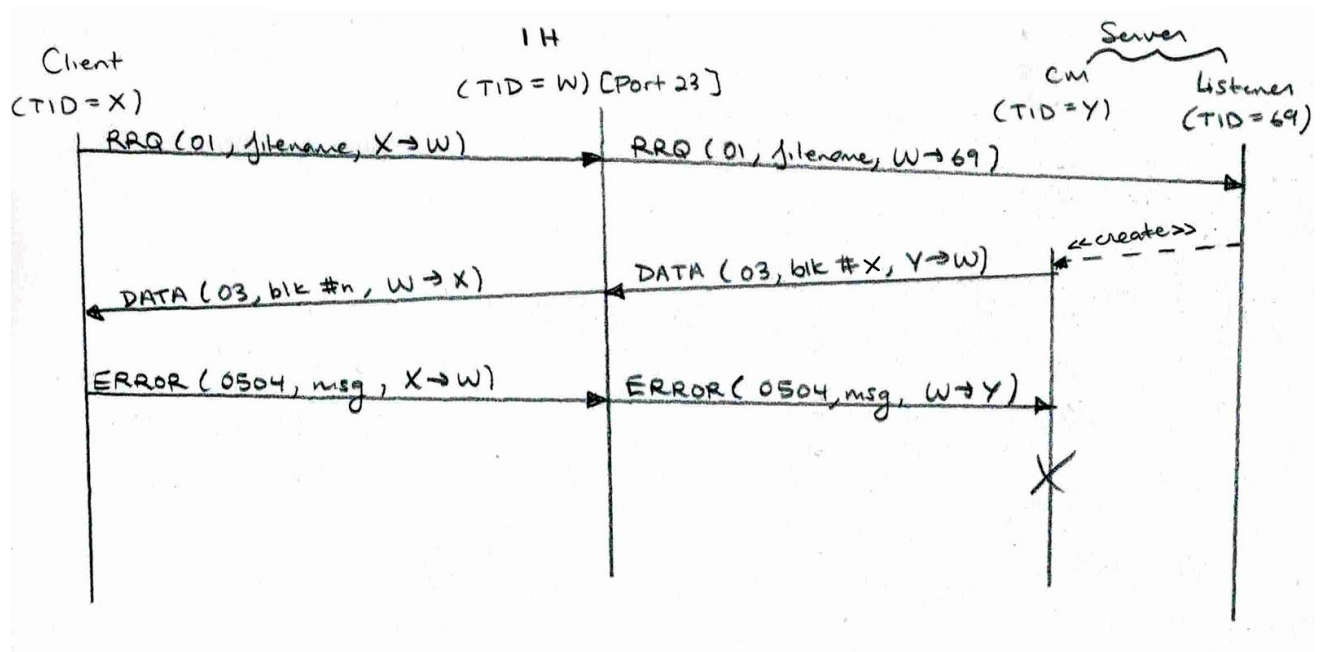 Client
(TID = X)
IH
(TID = W) [Port 23]
Server
CM
(TID = Y)
Listener
(TID = 69)
RRQ (01, filename, X → W)
RRQ (01, filename, W → 69)
<<create>>
DATA (03, blk #X, Y → W)
DATA (03, blk #n, W → X)
ERROR (0504, msg, X → W)
ERROR (0504, msg, W → Y)